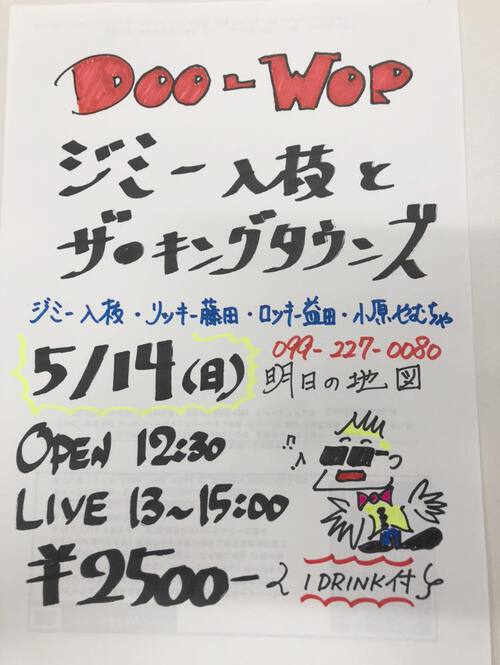 DOO-WOP
ジミー入枝と
ザ・キングタウンズ
ジミー入枝・リッキー藤田・ロッキー益田・小原やむちゃ
099-227-0080
5/14(日) 明日の地図
OPEN 12:30
LIVE 13〜15:00
¥2500-
1 DRINK付